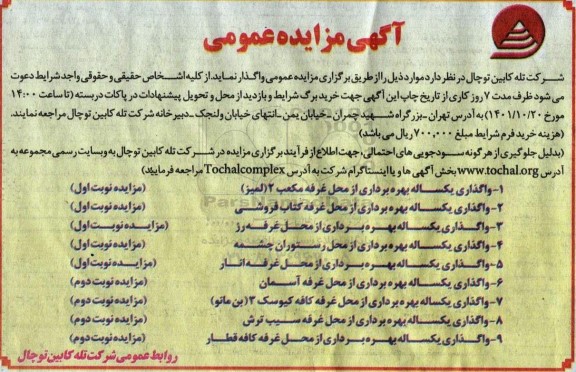 آگهی مزایده عمومی
شرکت تله کابین توچال در نظر دارد موارد ذیل را از طریق برگزاری مزایده عمومی واگذار نماید. از کلیه اشخاص حقیقی و حقوقی واجد شرایط دعوت
می شود ظرف مدت ۷ روز کاری از تاریخ چاپ این آگهی جهت خرید برگ شرایط و بازدید از محل و تحویل پیشنهادات در پاکات دربسته (تا ساعت ۱۴:۰۰
مورخ ۱۴۰۱/۱۰/۲۰) به آدرس تهران-بزرگراه شهید چمران-خیابان یمن-انتهای خیابان ولنجک-دبیرخانه شرکت تله کابین توچال مراجعه نمایند.
(هزینه خرید فرم شرایط مبلغ ۷۰۰,۰۰۰ ریال می باشد)
(بدلیل جلوگیری از هرگونه سودجویی های احتمالی، جهت اطلاع از فرآیند برگزاری مزایده در شرکت تله کابین توچال به وبسایت رسمی مجموعه به
آدرس www.tochal.org بخش آگهی ها و یا اینستاگرام شرکت به آدرس Tochalcomplex مراجعه فرمایید)
۱-واگذاری یکساله بهره برداری از محل غرفه مکعب ۲ (لمیز) (مزایده نوبت اول)
۲-واگذاری یکساله بهره برداری از محل غرفه کتاب فروشی (مزایده نوبت اول)
۳-واگذاری یکساله بهره برداری از محل غرفه رز (مزایده نوبت اول)
۴-واگذاری یکساله بهره برداری از محل رستوران چشمه (مزایده نوبت اول)
۵-واگذاری یکساله بهره برداری از محل غرفه انار (مزایده نوبت اول)
۶-واگذاری یکساله بهره برداری از محل غرفه آسمان (مزایده نوبت دوم)
۷-واگذاری یکساله بهره برداری از محل غرفه کافه کیوسک ۳ (بن مانو) (مزایده نوبت دوم)
۸-واگذاری یکساله بهره برداری از محل غرفه سیب ترش (مزایده نوبت دوم)
۹-واگذاری یکساله بهره برداری از محل غرفه کافه قطار (مزایده نوبت دوم)
روابط عمومی شرکت تله کابین توچال